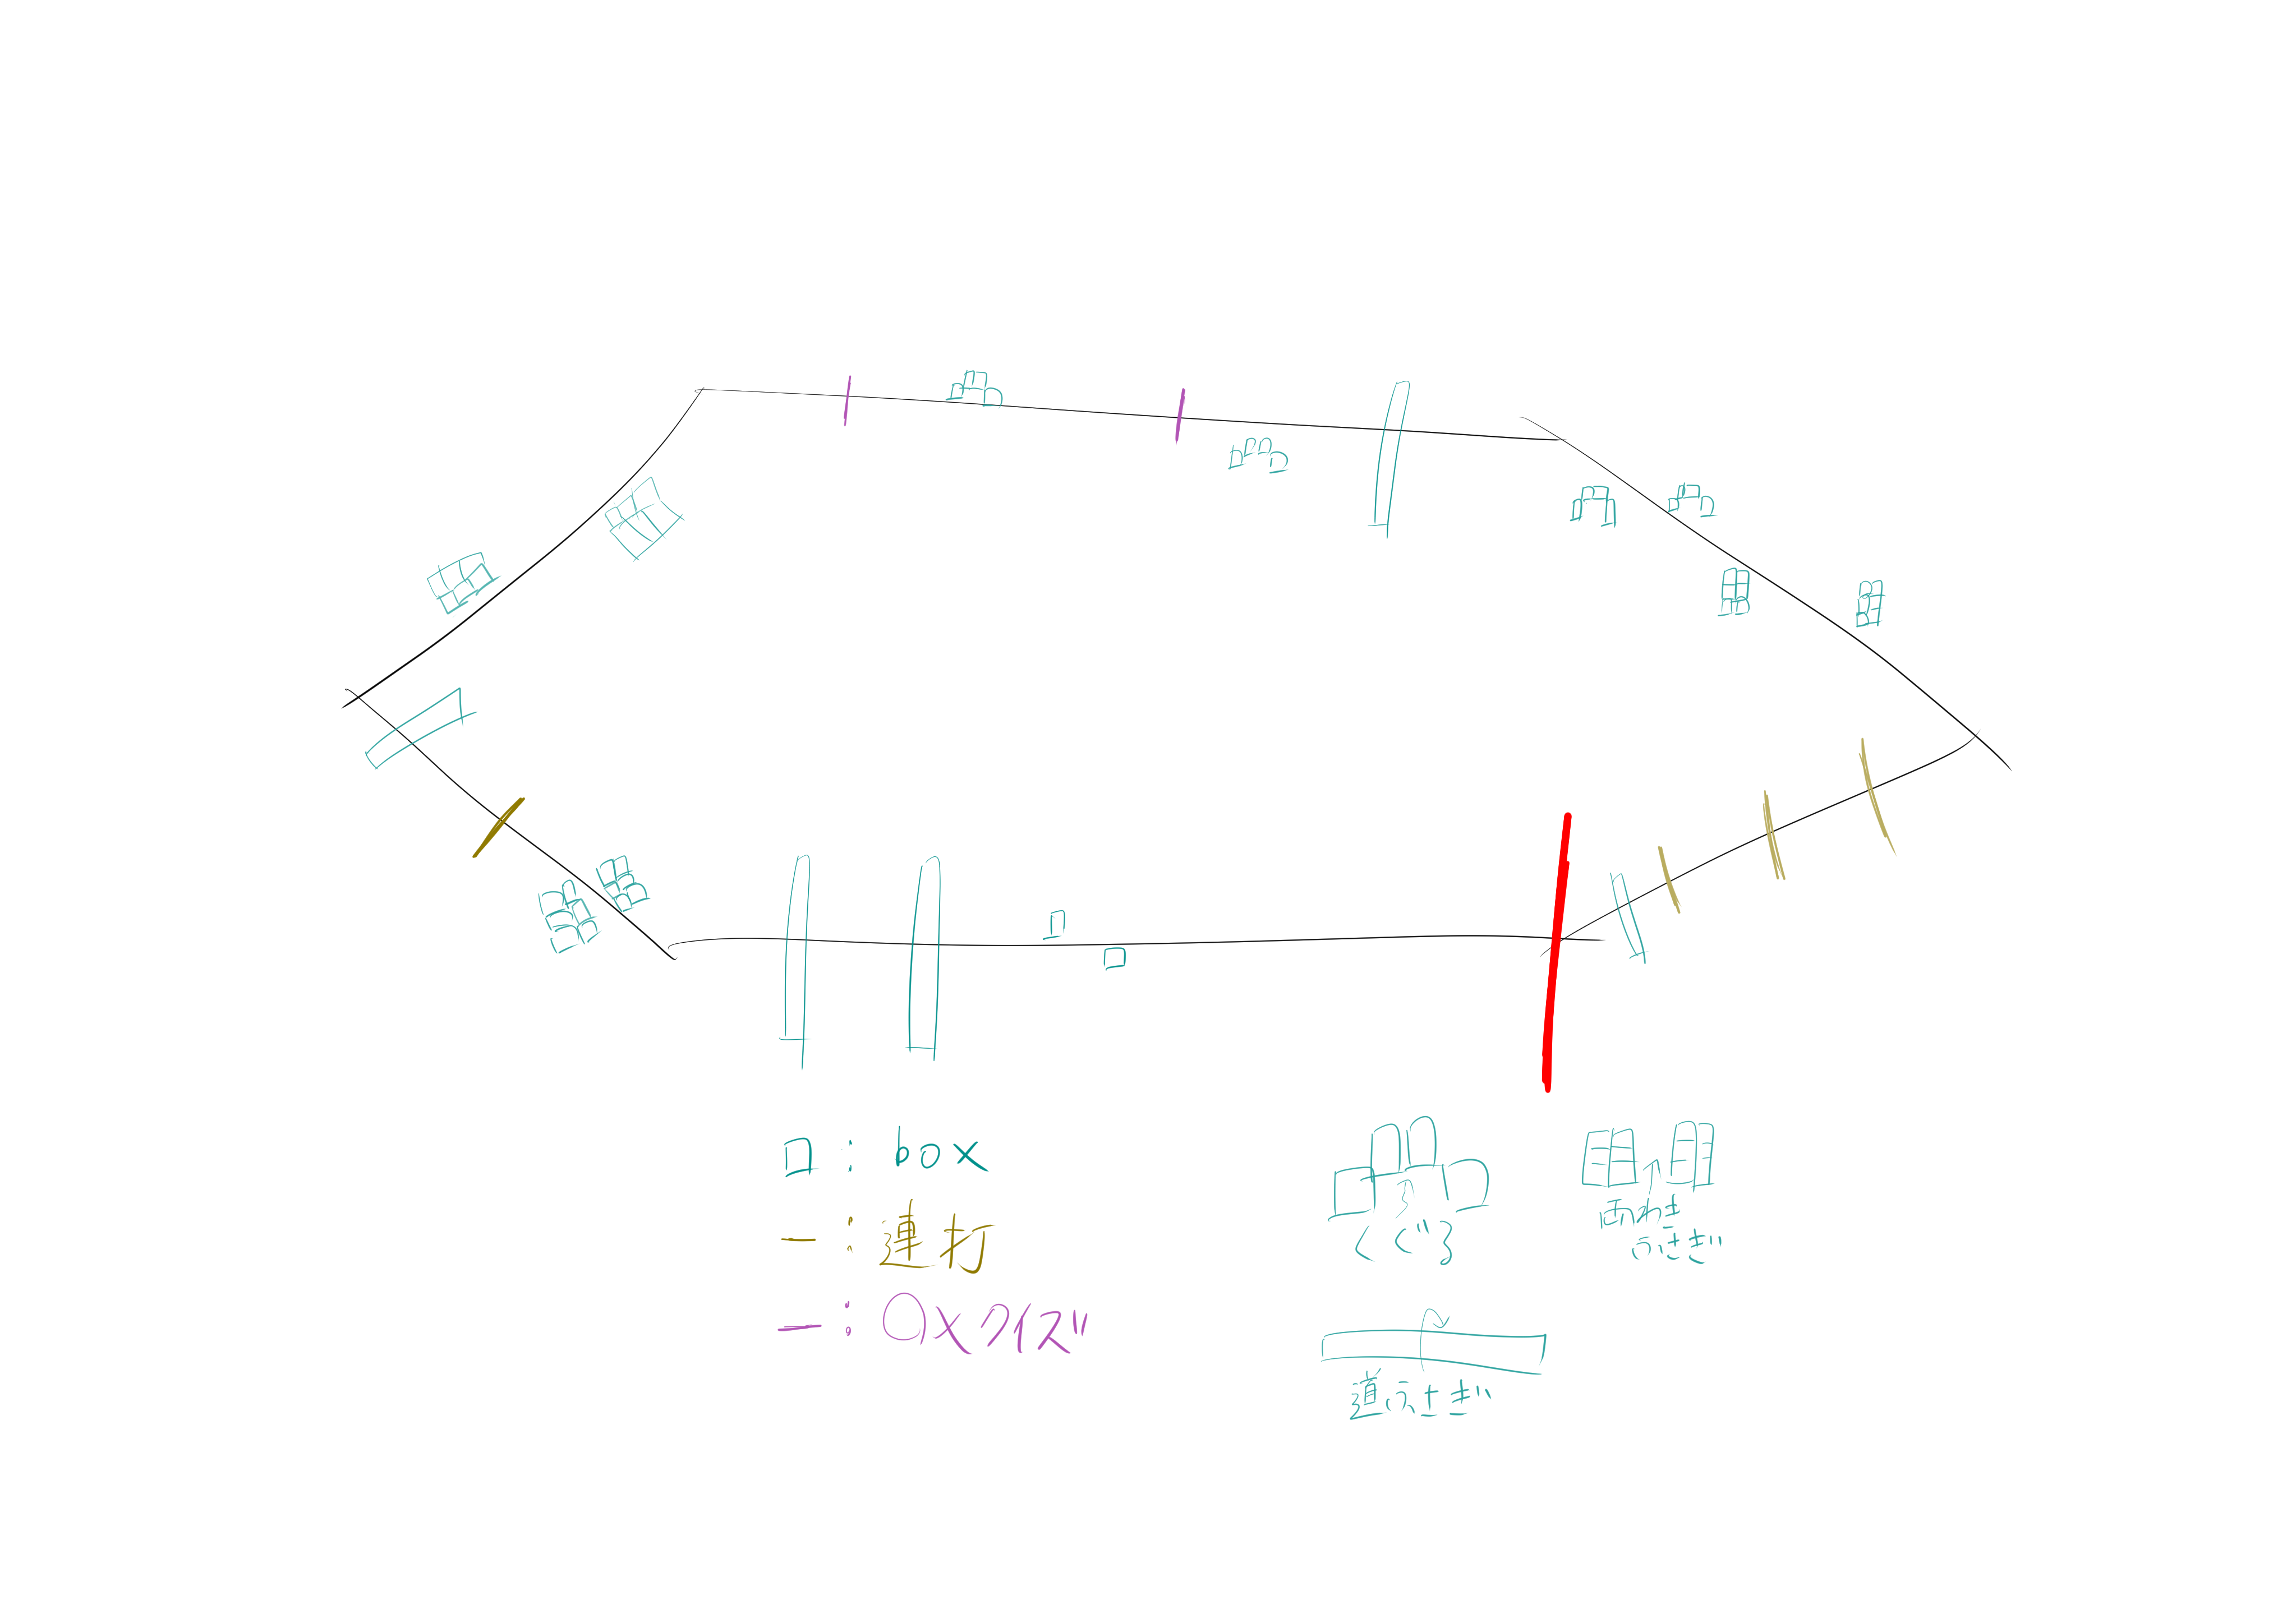 □：box
ー：連打
ー：○×クイズ
くぐる
両わき
ふさぎ
道ふさぎ